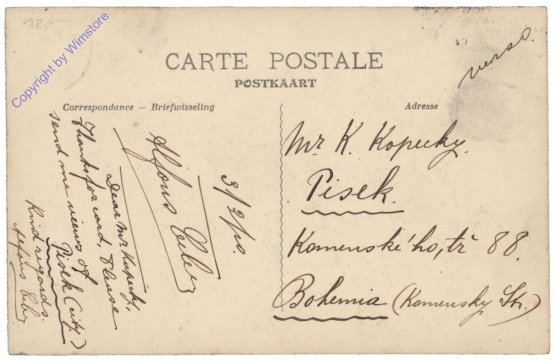 Copyright by Wimstore
CARTE POSTALE
POSTKAART
Correspondance — Briefwisseling
Adresse
verso.
3/2/10.
Dear Mr Kopecky,
Thanks for card, Please
send me views of
Pisek (city)
Kind regards.
Alfons
Mr K. Kopecky.
Pisek.
Komenského, tř 88.
Bohemia (Komensky Str.)